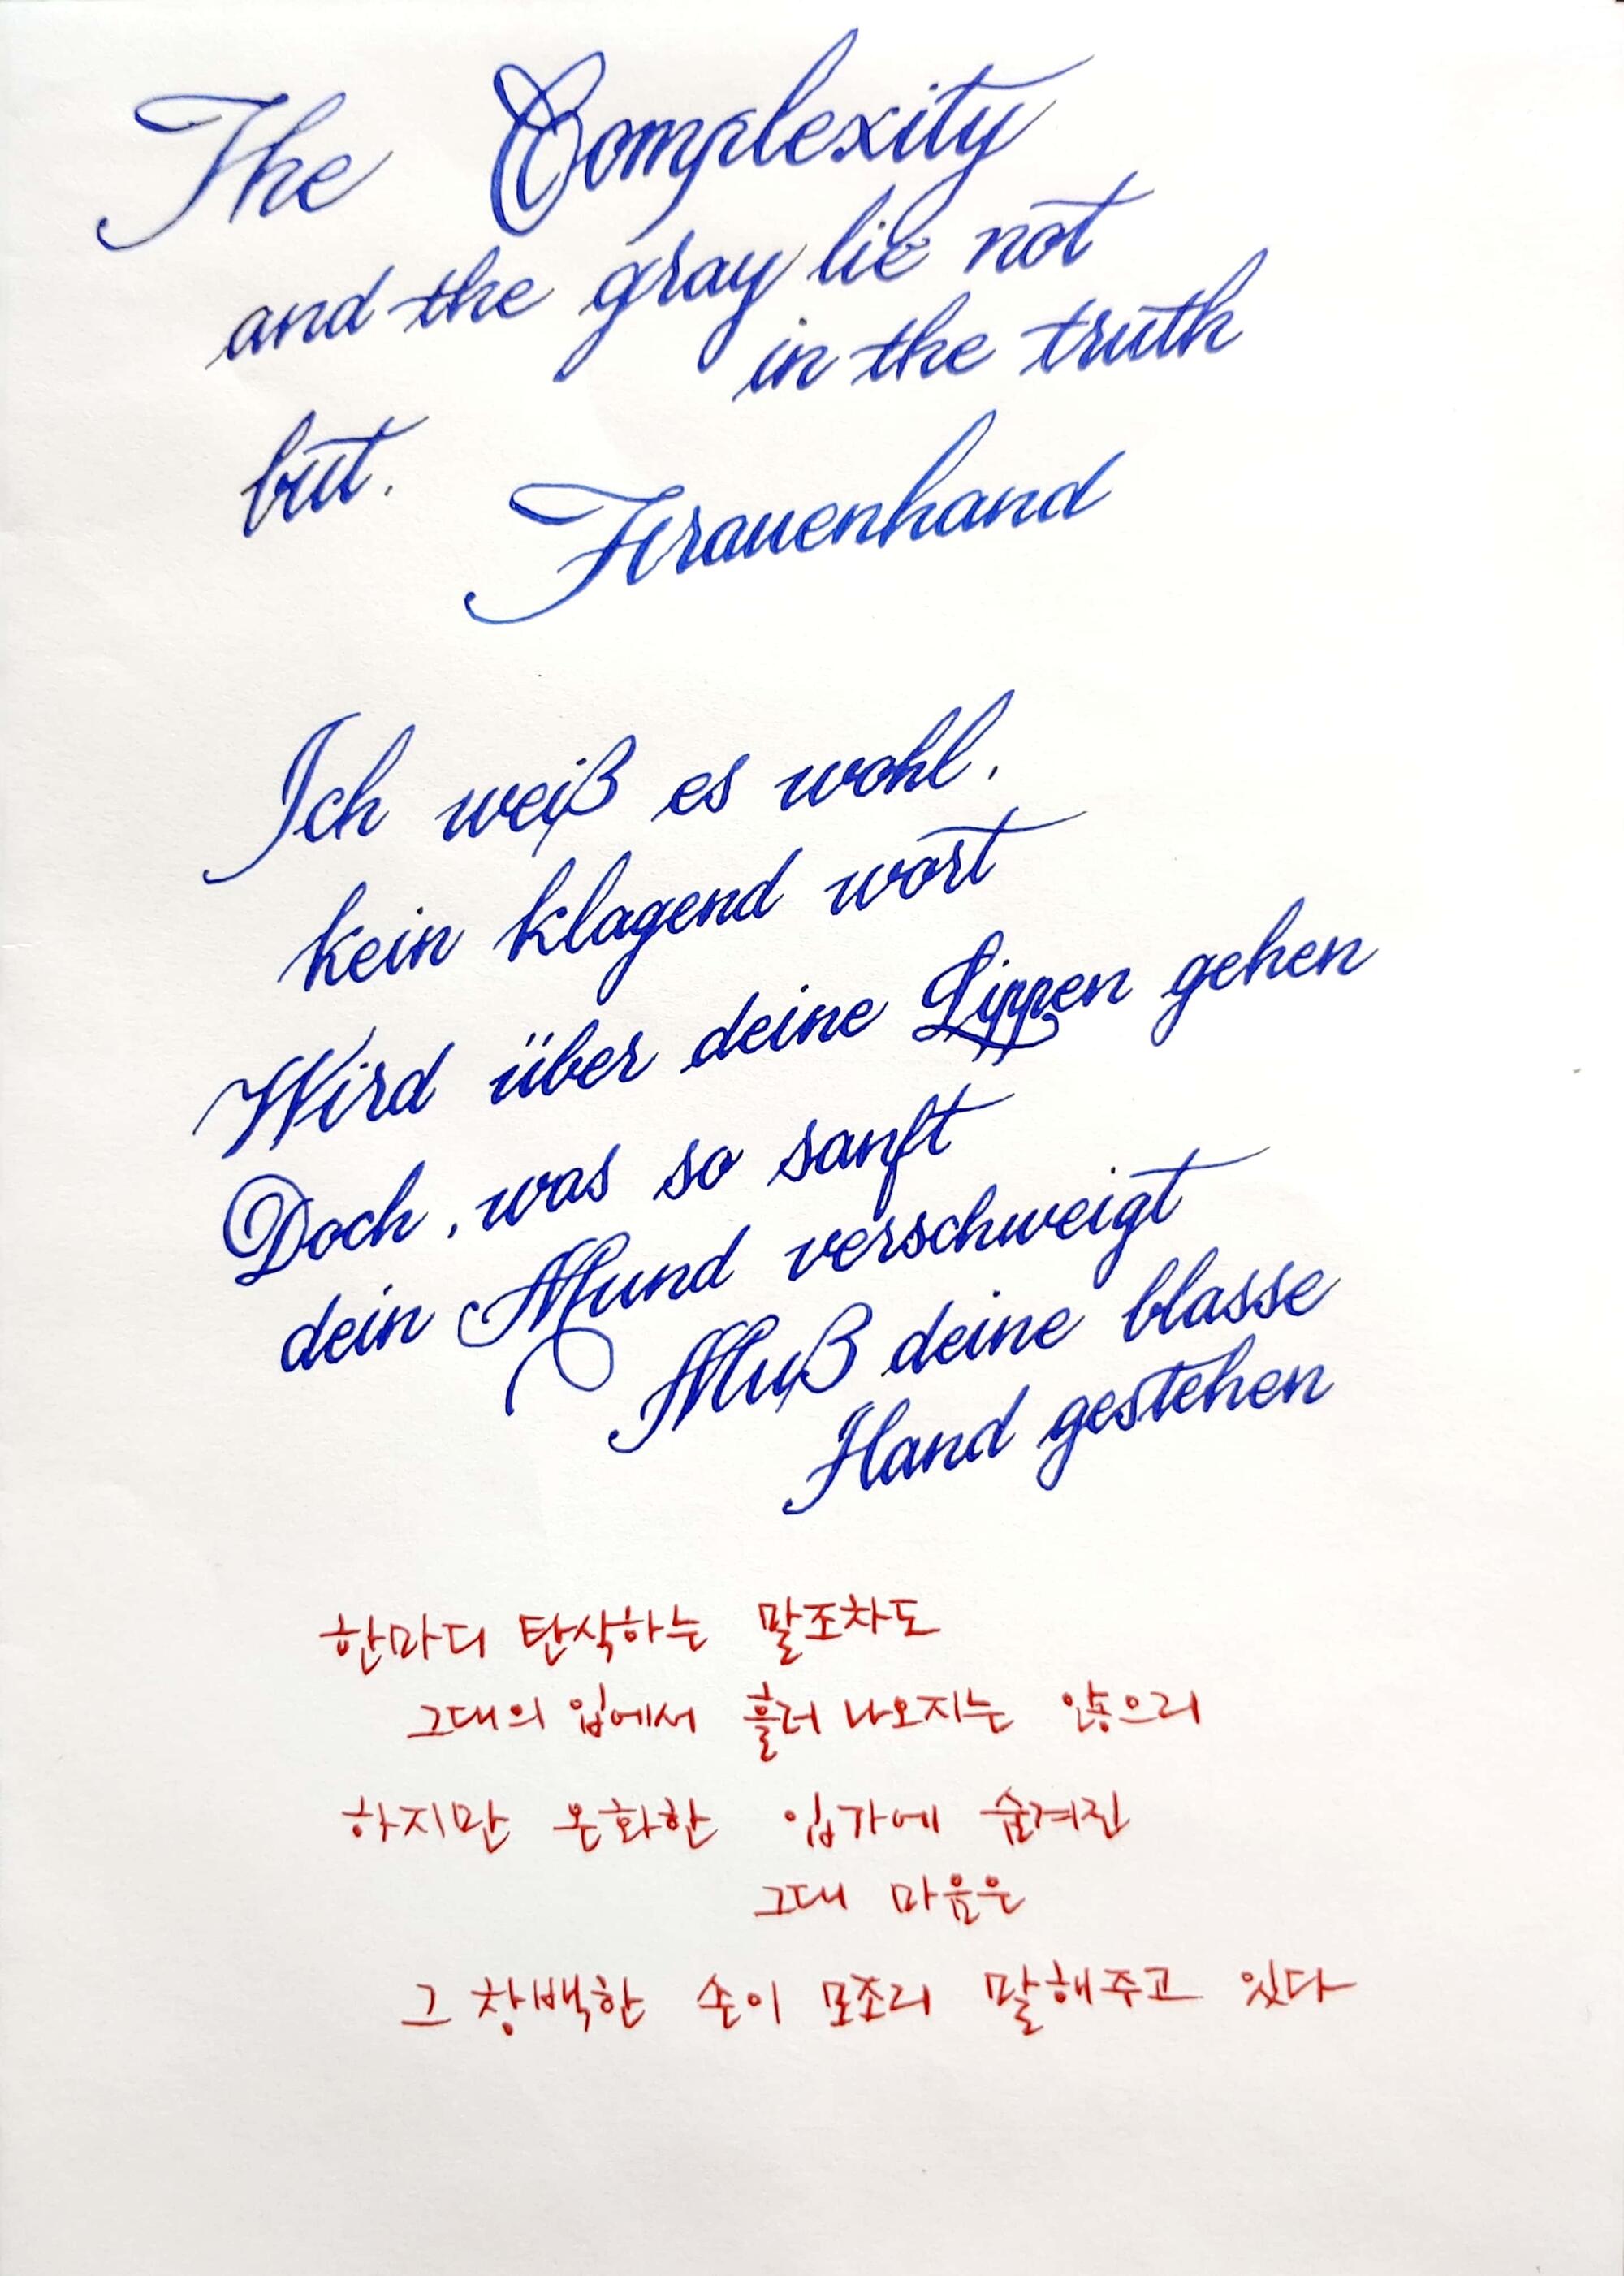 The Complexity
and the gray lie not
in the truth
but.
Frauenhand
Ich weiß es wohl,
kein klagend wort
Wird über deine Lippen gehen
Doch, was so sanft
dein Mund verschweigt
Muß deine blasse
Hand gestehen
한마디 탄식하는 말조차도
그대의 입에서 흘러 나오지는 않으리
하지만 온화한 입가에 숨겨진
그대 마음은
그 창백한 손이 모조리 말해주고 있다